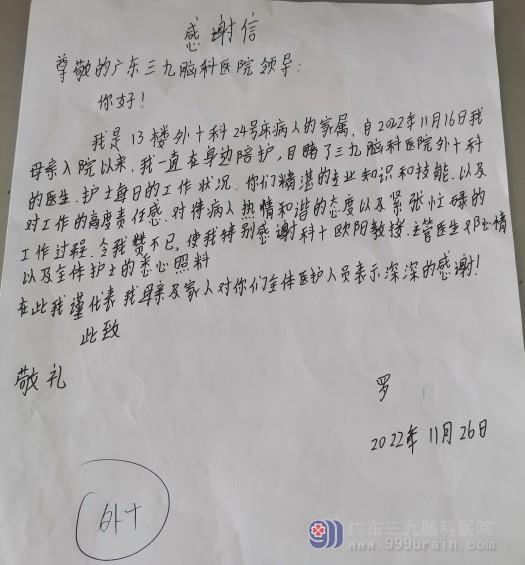 感谢信
尊敬的广东三九脑科医院领导：
你好！
我是13楼外十科24号床病人的家属，自2022年11月16日我
母亲入院以来，我一直在身边陪护，目睹了三九脑科医院外十科
的医生、护士每日的工作状况，你们精湛的专业知识和技能，以及
对工作的高度责任感，对待病人热情和谐的态度以及紧张忙碌的
工作过程，令我赞不已，使我特别感谢科十欧阳教授、主管医生邓 情
以及全体护士的悉心照料
在此我谨代表我母亲及家人对你们全体医护人员表示深深的感谢！
此致
敬礼
罗
2022年11月26日
外十
广东三九脑科医院
www.999brain.com